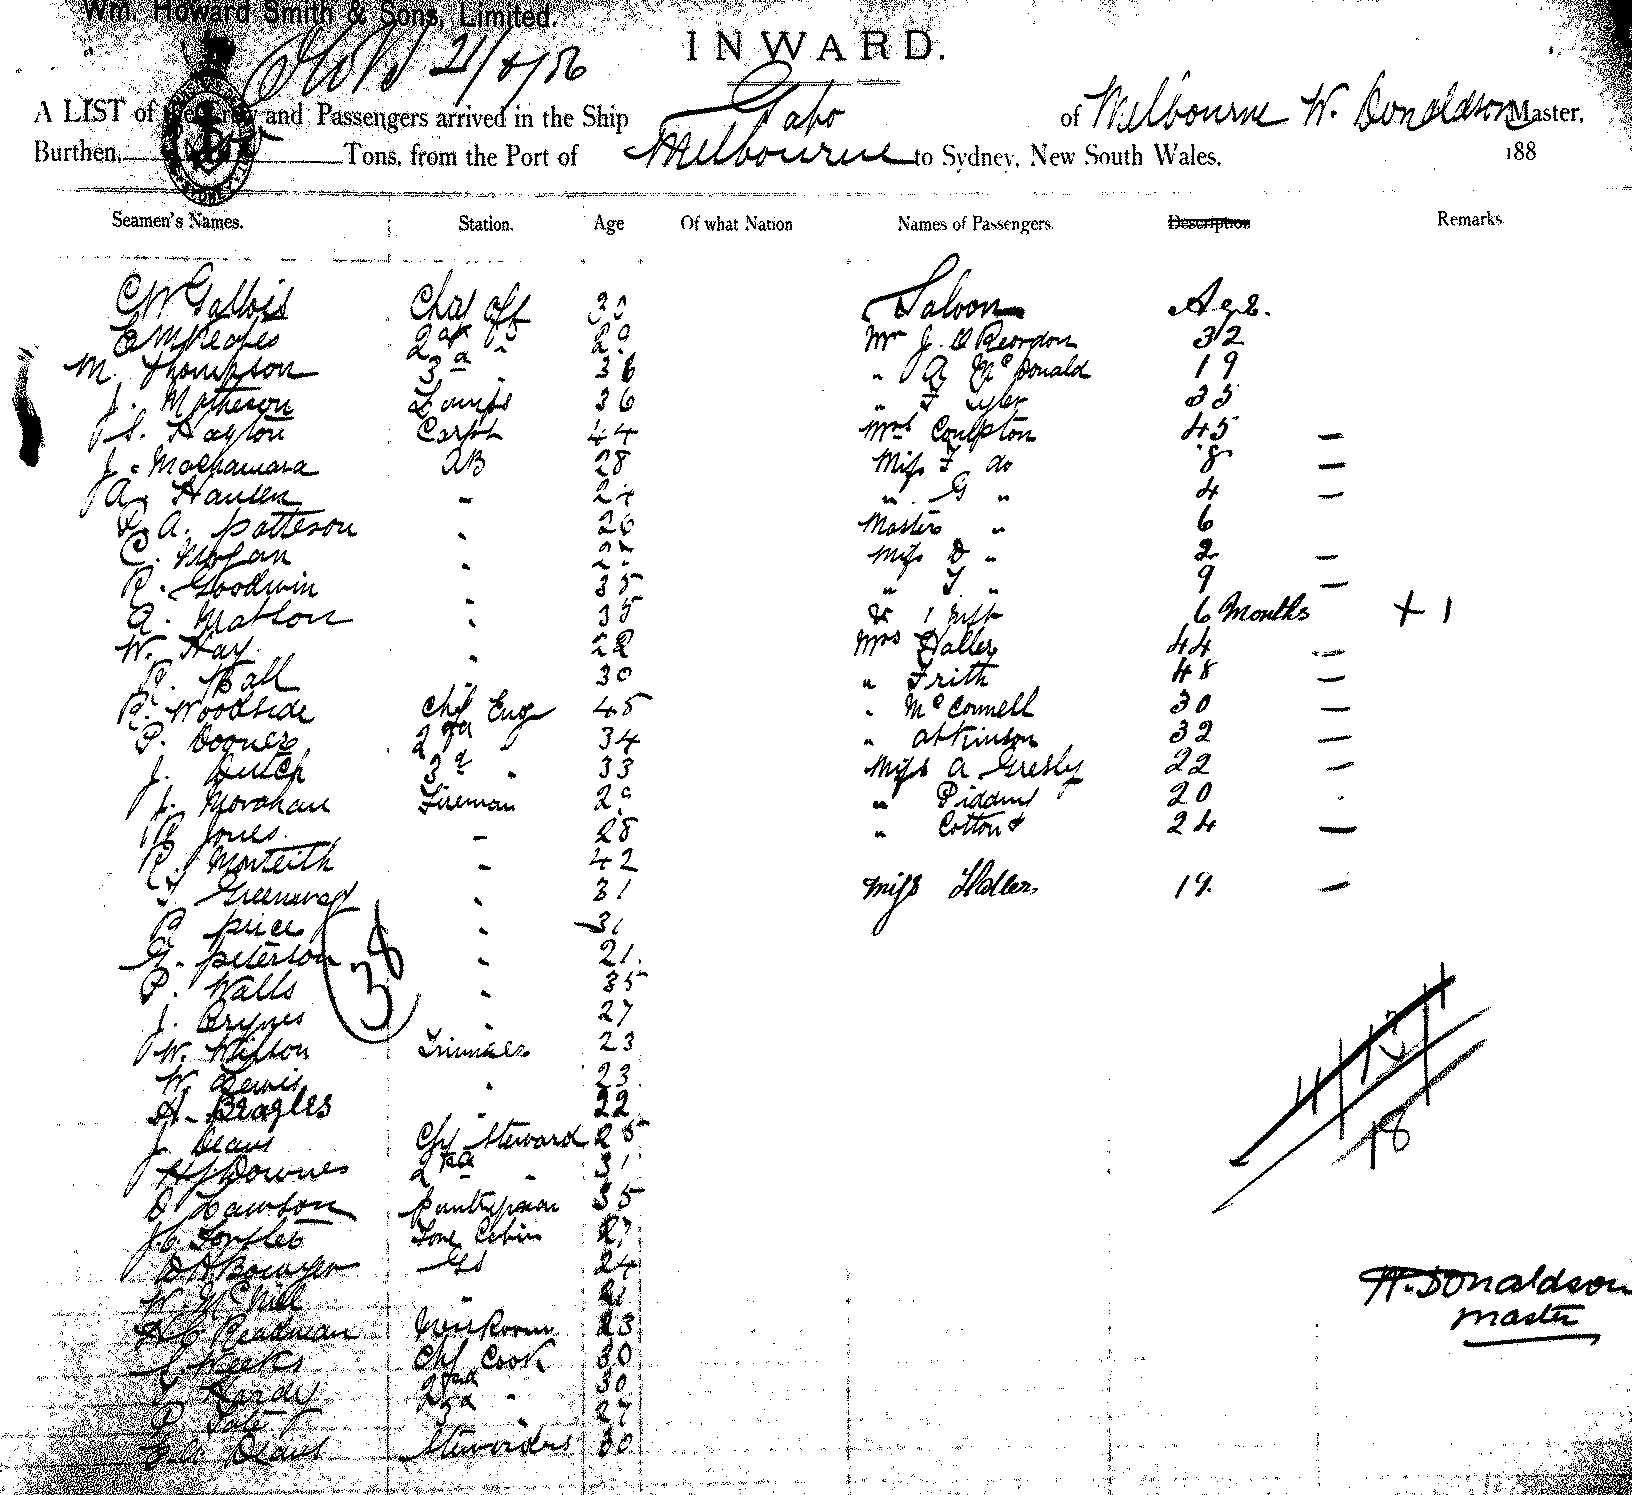 Wm. Howard Smith & Sons, Limited.
21/8/86
INWARD.
A LIST of and Passengers arrived in the Ship Gabo of Melbourne W. Donaldson Master,
Burthen, Tons, from the Port of Melbourne to Sydney, New South Wales, 188
Seamen's Names. Station. Age Of what Nation Names of Passengers. Description Remarks
C W Chief Off 30 Saloon Age.
E 2nd " 29 Mr J. O Reordon 32
M. Thompson 3d " 36 " A McDonald 19
J. Matheson Lamps 36 " F Tyler 33
S. Hayton Carpt 44 Mrs Coulpton 45 —
J. Macnamara AB 28 Miss F. do 8 —
A. Hansen " 24 " G " 4 —
A. Patteson " 26 Master " 6
C. Mogan " Miss D " 2 —
R. Goodwin " 35 " " 9 —
A. Matson " 35 & 1 Inft 6 Months + 1
W. Hay. " 28 Mrs Haller 44 —
Ball " 30 " Frith 48 —
R. Woodside Chf Eng 45 " McConnell 30 —
P. 2nd 34 " Atkinson 32 —
J. Dutch 3d " 33 Miss A Gresly 22 —
J. Monahan Fireman 29 " 20
Jones. " 28 " Cotton 24 —
R. Monteith " 42
T Greenway " 31 Miss Haller 19. —
Price " 31
G. Peterson " 21.
P. Walls " 35
38
J. Brynes " 27
W. Wilson Trimmer 23
W. Lewis " 23
A. Beagles " 22
J. Deans Chf Steward 25
H J Downes 2nd " 31
D Lawson Pantryman 35
J. C. Fore Cabin 27
D Bowyer GS 24
W. McNeill " 21
Readman Room 23
Weeks Chf Cook 30
Hardy 2nd " 30
P. 3d " 27
Deans Stewardess 30
18
W. Donaldson
Master